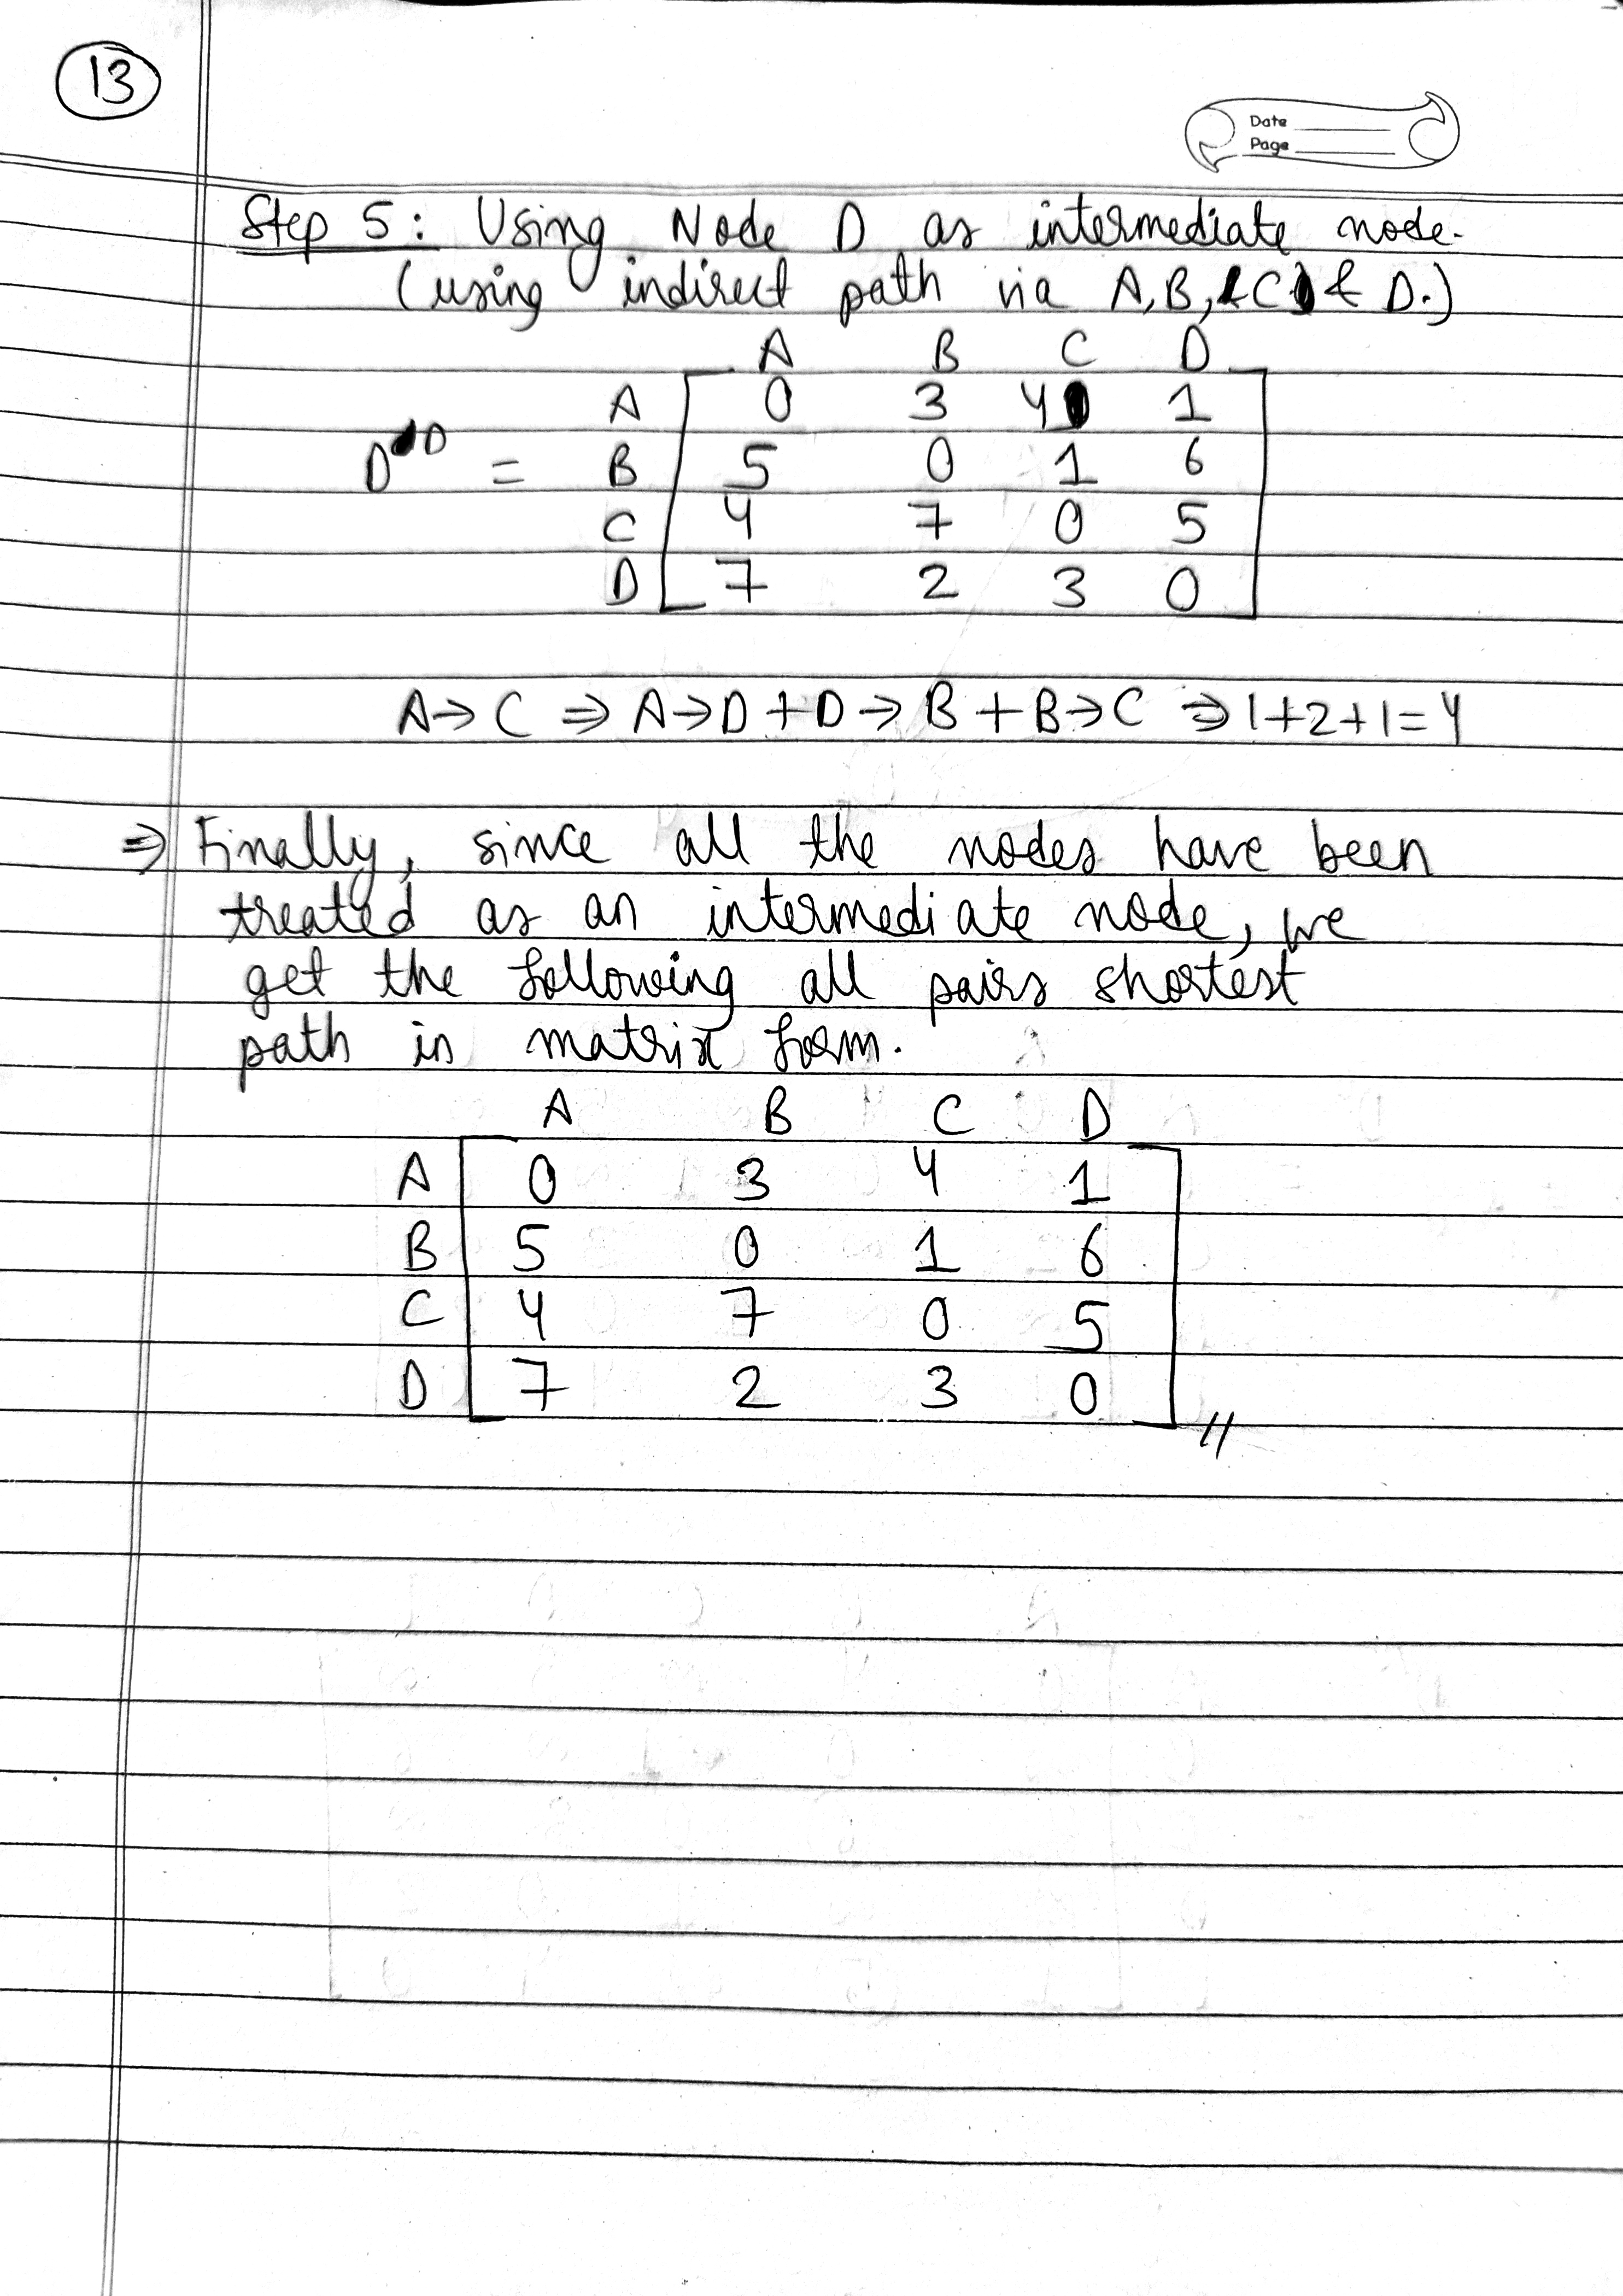 13
Date
Page
Step 5: Using Node D as intermediate node.
(using indirect path via A, B, & C & D.)
A B C D
A 0 3 4 1
D^D = B 5 0 1 6
C 4 7 0 5
D 7 2 3 0
A → C ⇒ A → D + D → B + B → C ⇒ 1 + 2 + 1 = 4
⇒ Finally, since all the nodes have been
treated as an intermediate node, we
get the following all pairs shortest
path in matrix form.
A B C D
A 0 3 4 1
B 5 0 1 6
C 4 7 0 5
D 7 2 3 0 //